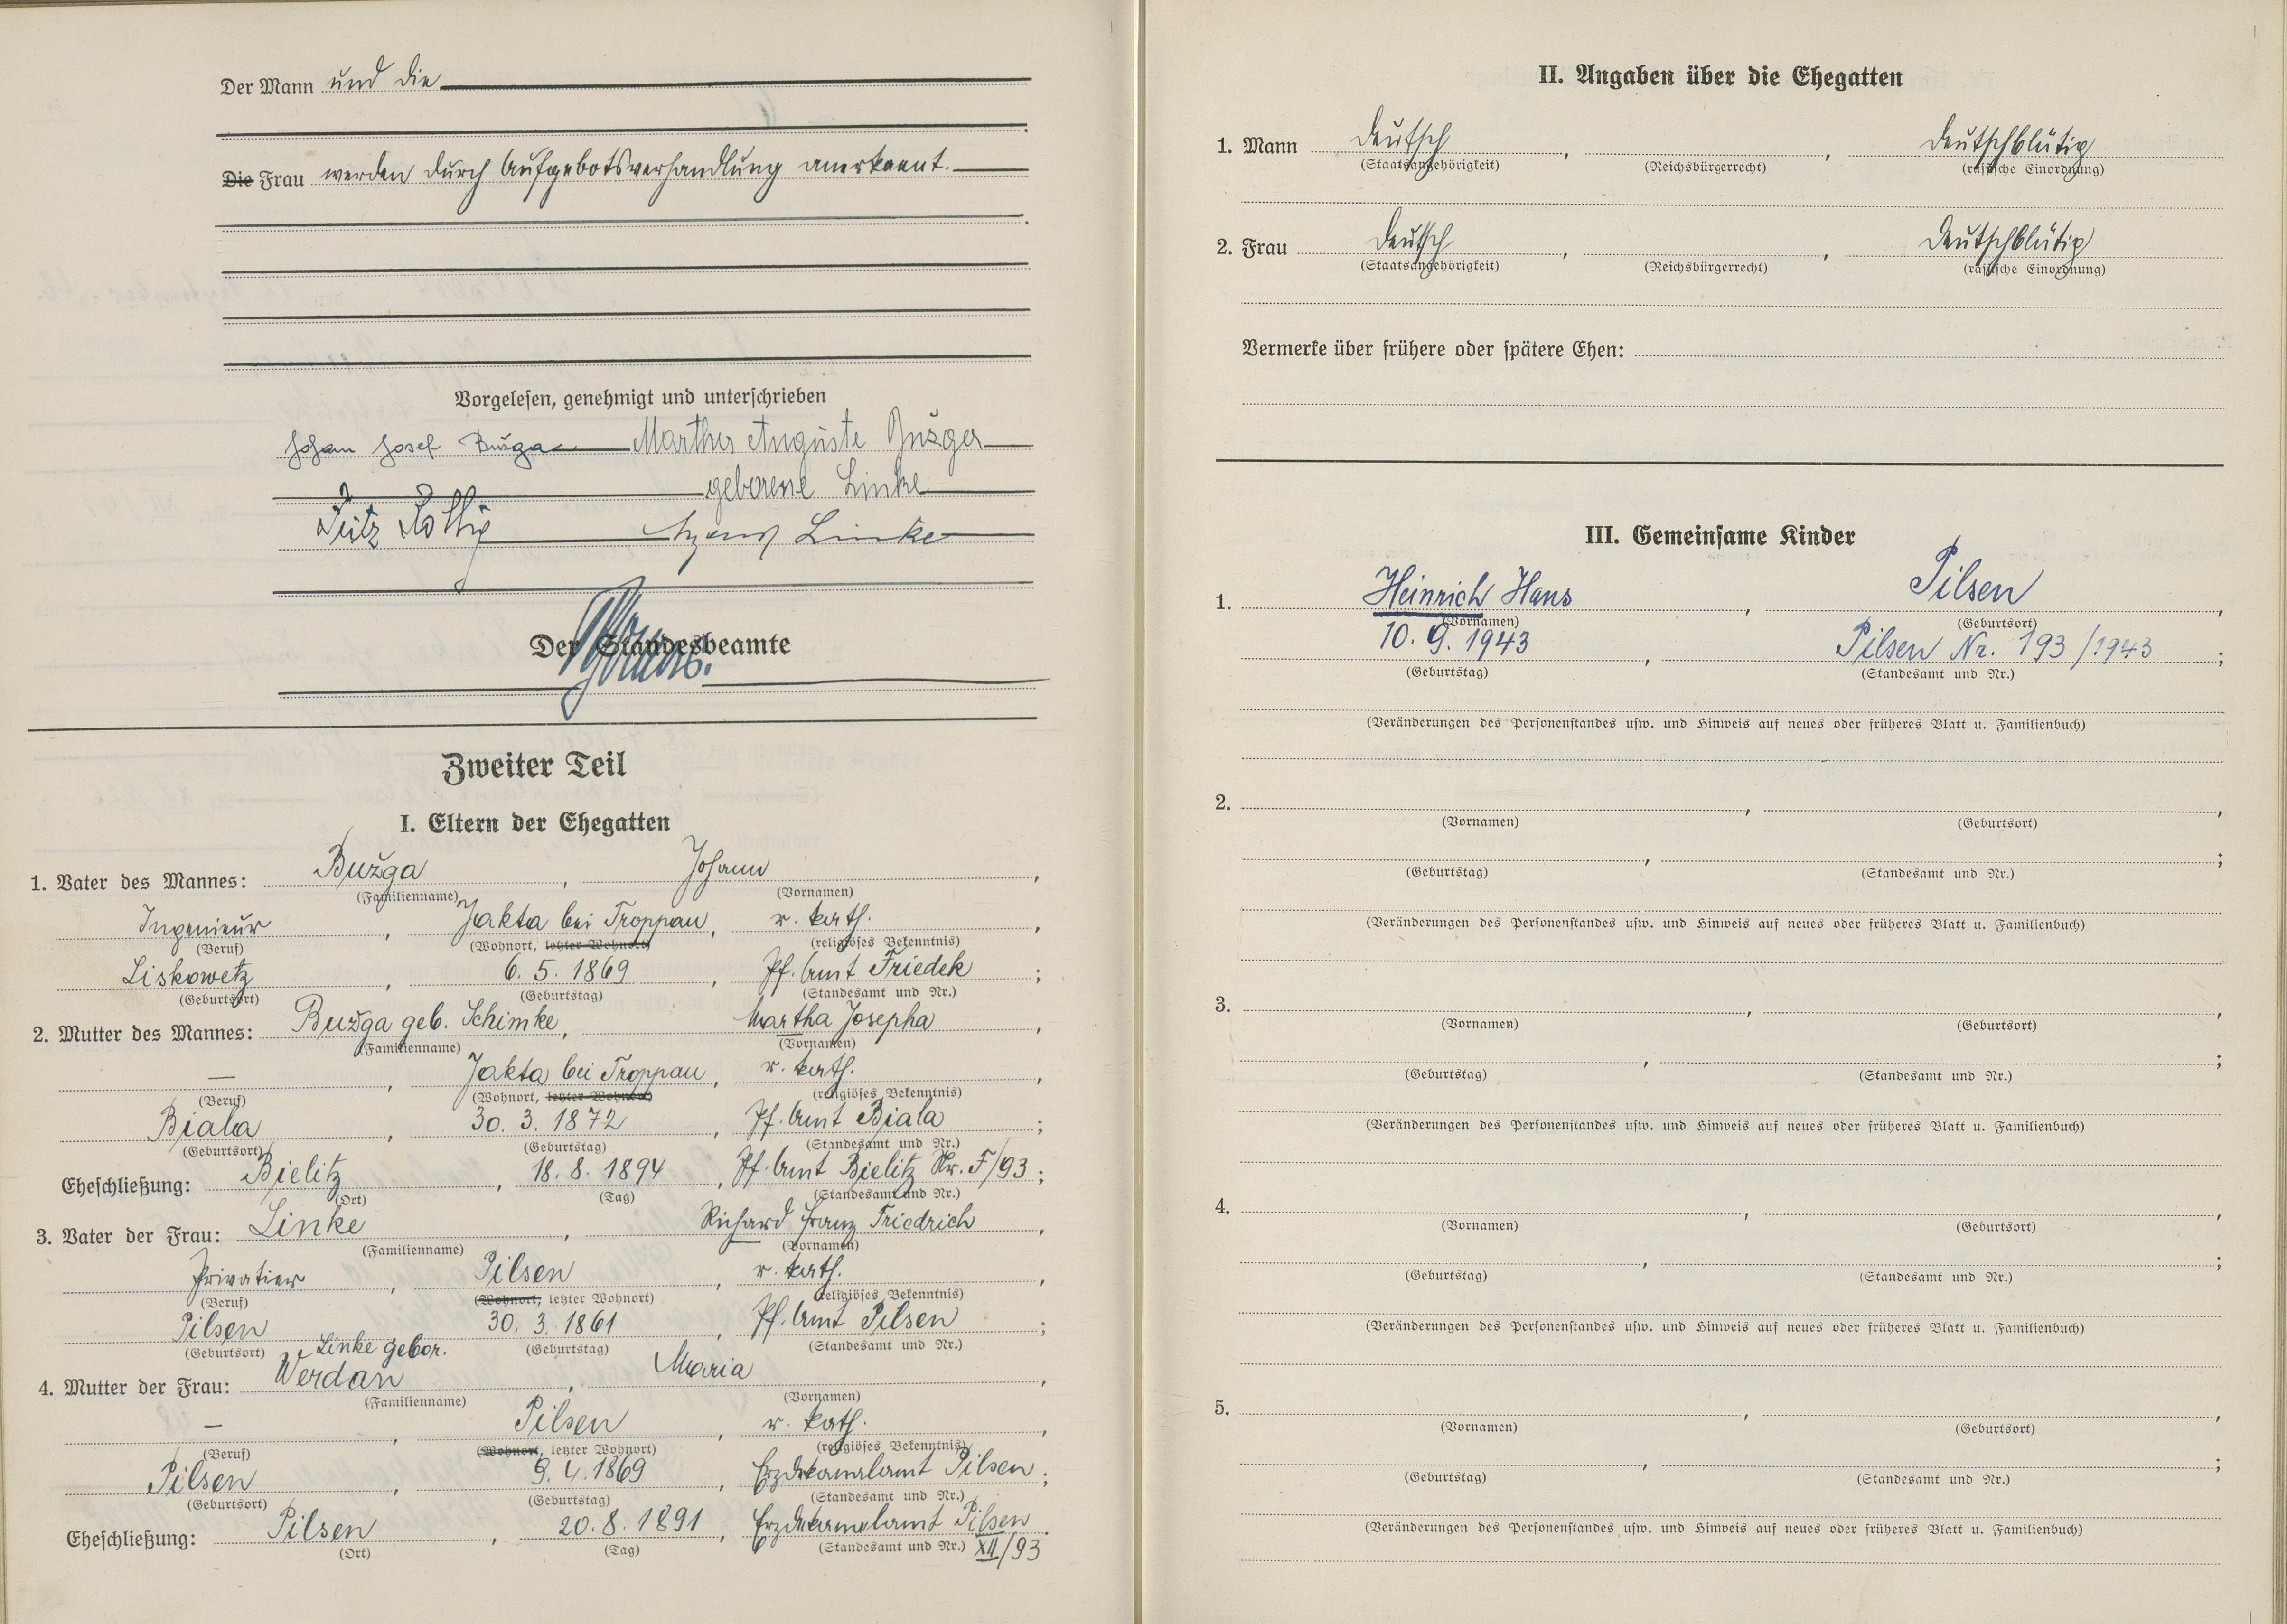 Der Mann und die
Die Frau werden durch Aufgebotsverhandlung anerkannt.
Vorgelesen, genehmigt und unterschrieben
Johan Josef Bužga Martha Auguste Bužga
geborene Linke
Linke
Der Standesbeamte
Zweiter Teil
I. Eltern der Ehegatten
1. Vater des Mannes: Bužga, Johann,
(Familienname) (Vornamen)
Ingenieur, Jakta bei Troppau, r. kath.,
(Beruf) (Wohnort, letzter Wohnort) (religiöses Bekenntnis)
Liskowetz, 6. 5. 1869, Pf. Amt Friedek;
(Geburtsort) (Geburtstag) (Standesamt und Nr.)
2. Mutter des Mannes: Bužga geb. Schimke, Martha Josepha,
(Familienname) (Vornamen)
—, Jakta bei Troppau, r. kath.,
(Beruf) (Wohnort, letzter Wohnort) (religiöses Bekenntnis)
Biala, 30. 3. 1872, Pf. Amt Biala;
(Geburtsort) (Geburtstag) (Standesamt und Nr.)
Eheschließung: Bielitz, 18. 8. 1894, Pf. Amt Bielitz Nr. F/93;
(Ort) (Tag) (Standesamt und Nr.)
3. Vater der Frau: Linke, Richard Franz Friedrich,
(Familienname) (Vornamen)
Privatier, Pilsen, r. kath.,
(Beruf) (Wohnort, letzter Wohnort) (religiöses Bekenntnis)
Pilsen, 30. 3. 1861, Pf. Amt Pilsen;
(Geburtsort) (Geburtstag) (Standesamt und Nr.)
Linke gebor.
4. Mutter der Frau: Werdan, Maria,
(Familienname) (Vornamen)
—, Pilsen, r. kath.,
(Beruf) (Wohnort, letzter Wohnort) (religiöses Bekenntnis)
Pilsen, 9. 4. 1869, Erzdekanalamt Pilsen;
(Geburtsort) (Geburtstag) (Standesamt und Nr.)
Eheschließung: Pilsen, 20. 8. 1891, Erzdekanalamt Pilsen
(Ort) (Tag) (Standesamt und Nr.) XII/93
II. Angaben über die Ehegatten
1. Mann Deutsch, , Deutschblütig
(Staatsangehörigkeit) (Reichsbürgerrecht) (rassische Einordnung)
2. Frau Deutsch, , Deutschblütig
(Staatsangehörigkeit) (Reichsbürgerrecht) (rassische Einordnung)
Vermerke über frühere oder spätere Ehen:
III. Gemeinsame Kinder
1. Heinrich Hans, Pilsen,
(Vornamen) (Geburtsort)
10. 9. 1943, Pilsen Nr. 193/1943;
(Geburtstag) (Standesamt und Nr.)
(Veränderungen des Personenstandes usw. und Hinweis auf neues oder früheres Blatt u. Familienbuch)
2. , ,
(Vornamen) (Geburtsort)
, ;
(Geburtstag) (Standesamt und Nr.)
(Veränderungen des Personenstandes usw. und Hinweis auf neues oder früheres Blatt u. Familienbuch)
3. , ,
(Vornamen) (Geburtsort)
, ;
(Geburtstag) (Standesamt und Nr.)
(Veränderungen des Personenstandes usw. und Hinweis auf neues oder früheres Blatt u. Familienbuch)
4. , ,
(Vornamen) (Geburtsort)
, ;
(Geburtstag) (Standesamt und Nr.)
(Veränderungen des Personenstandes usw. und Hinweis auf neues oder früheres Blatt u. Familienbuch)
5. , ,
(Vornamen) (Geburtsort)
, ;
(Geburtstag) (Standesamt und Nr.)
(Veränderungen des Personenstandes usw. und Hinweis auf neues oder früheres Blatt u. Familienbuch)